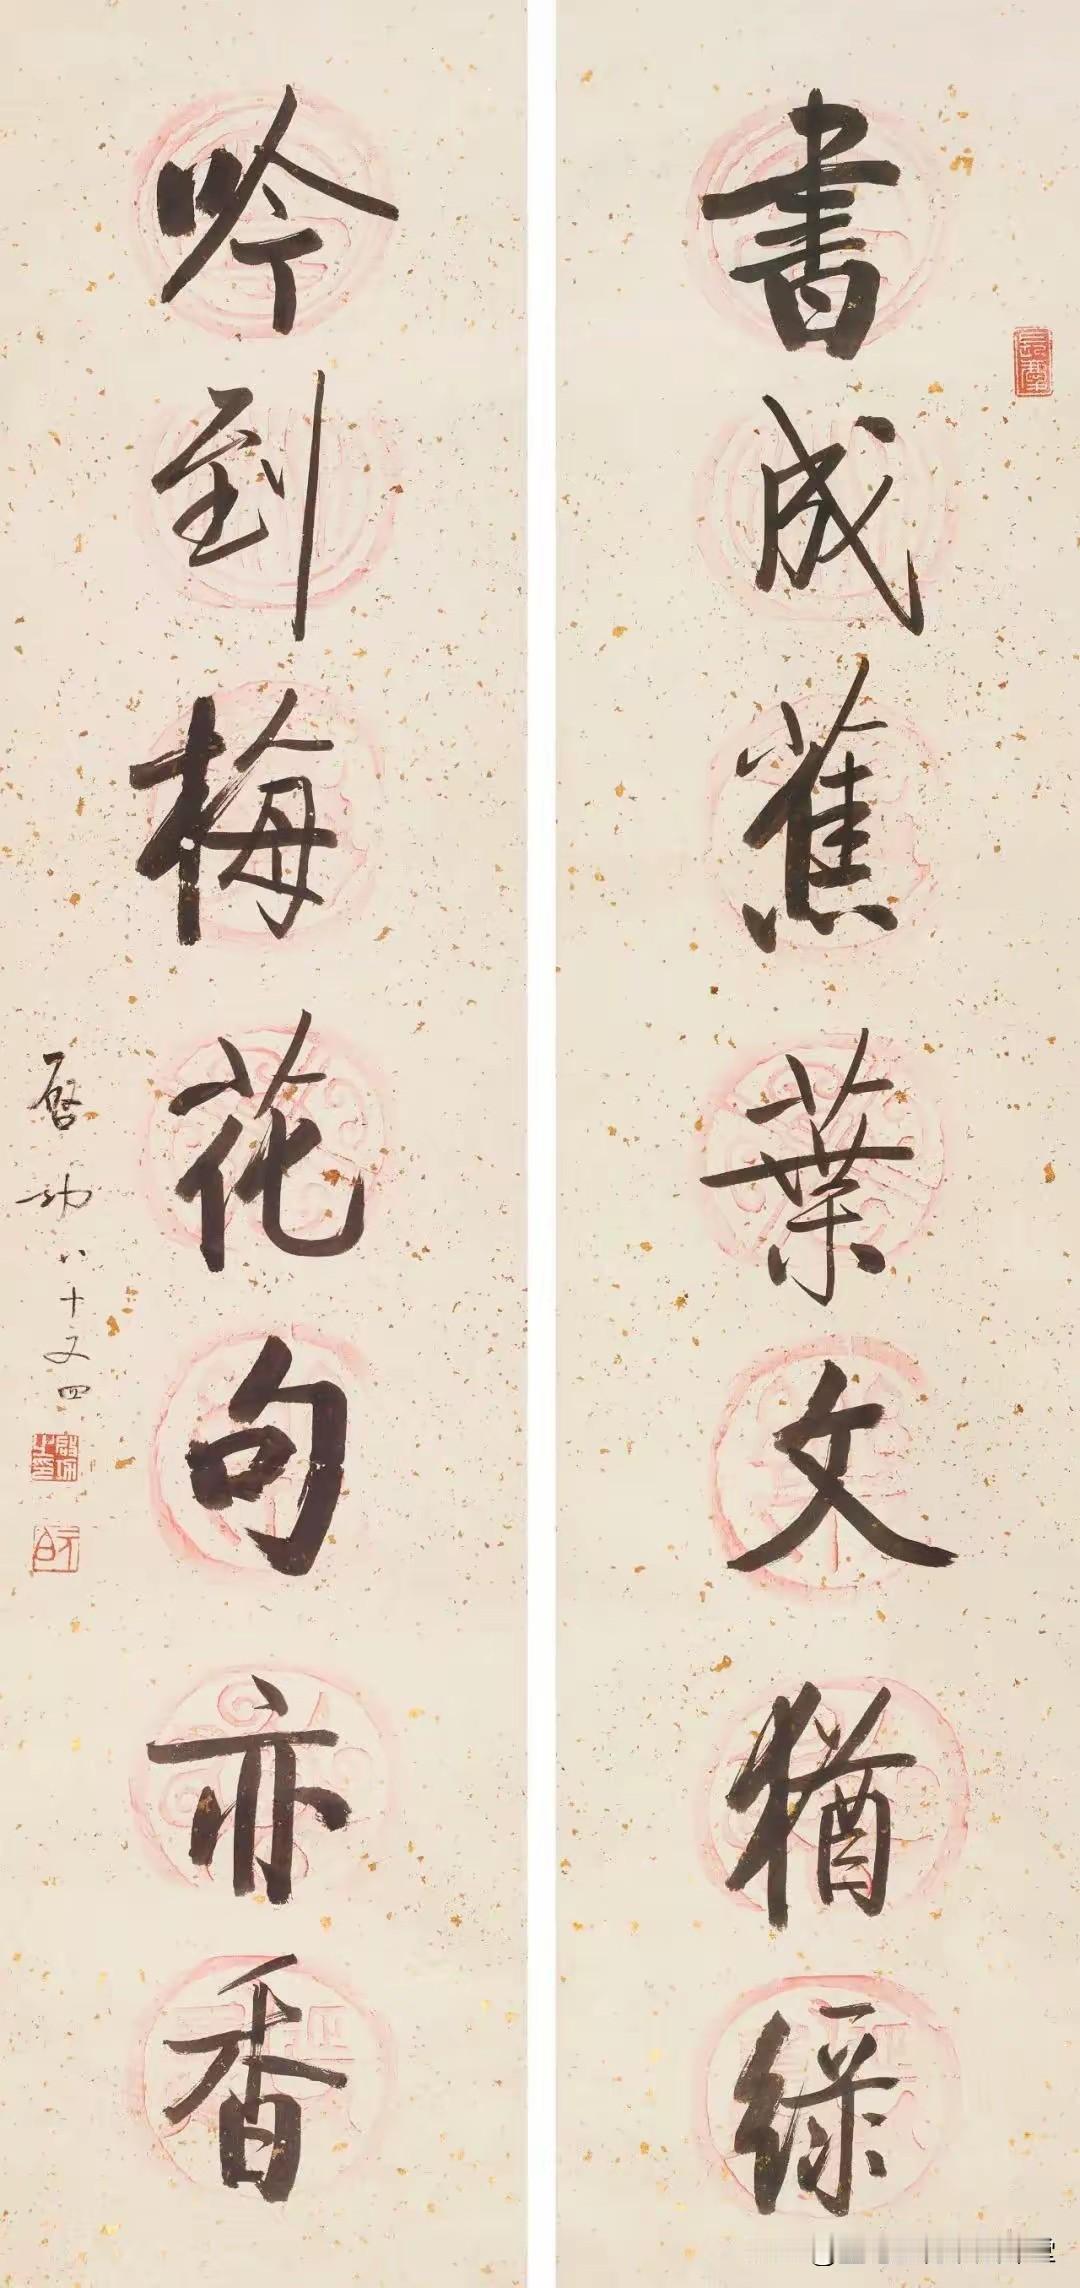 書成蕉葉文猶綠
吟到梅花句亦香
啓功八十又四
啟功之印